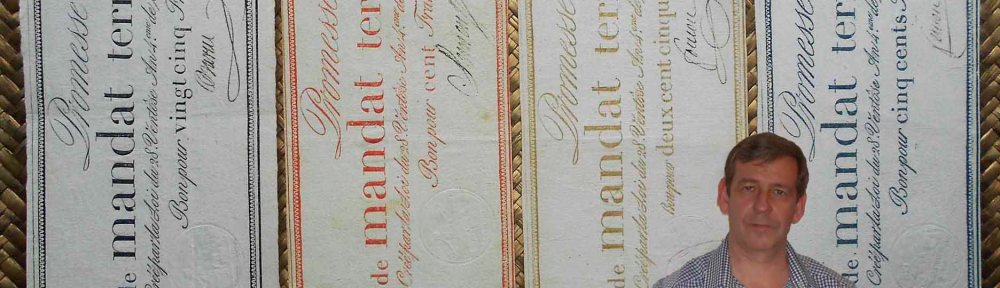 Promesse
de mandat terr
Créé par la loi du 28 Ventôse An 4.me
Bon pour vingt cinq
Promesse
de mandat terr
Créé par la loi du 28 Ventôse An 4.me de
Bon pour cent Fra
Promesse
de mandat terr
Créé par la loi du 28 Ventôse An 4.me de
bon pour deux cent cinqu
Promesse
de mandat terr
Créé par la loi du 28 Ventôse An 4.me de
Bon pour cinq cents